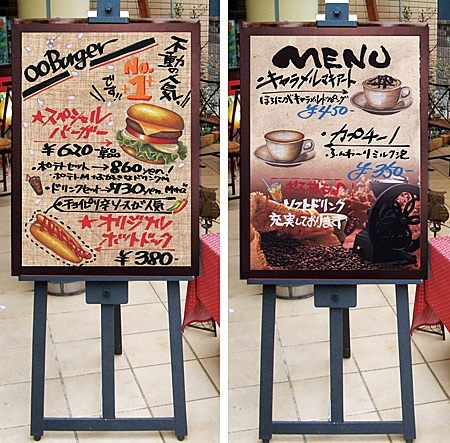 ○○Burger
不動の人気
No.1
です!!
★スペシャル
バーガー
¥620 単品
・ポテトセット→860yen!
・ドリンクセット→730yen
チョイピリ辛ソースが人気
★オリジナル
ホットドック
¥380
MENU
・キャラメルマキアート
ほろにがキャラメルトッピング
¥450-
・カプチーノ
ふんわ〜りミルク泡
¥350-
ソフトドリンク
充実しております